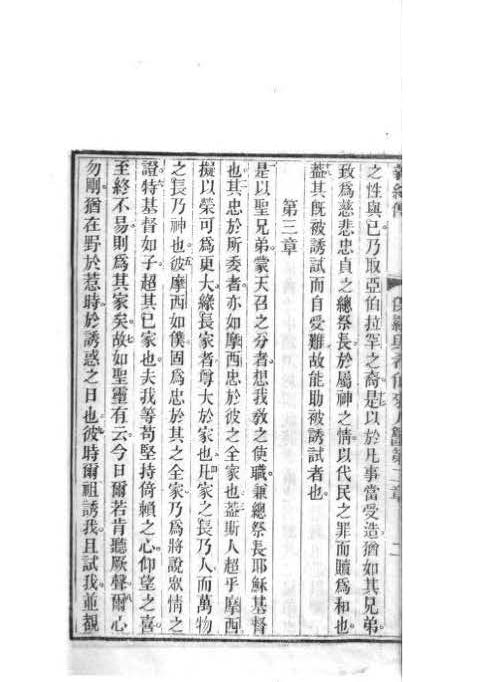 之性與己乃取亞伯拉罕之裔是以於凡事當受造猶如其兄弟
致為慈悲忠貞之總祭長於屬神之情以代民之罪而贖為和也
葢其既被誘試而自受難故能助被誘試者也
第三章
是以聖兄弟蒙天召之分者想我教之使職兼總祭長耶穌基督
也其忠於所委者亦如摩西忠於彼之全家也葢斯人超乎摩西
擬以榮可為更大緣長家者尊大於家也凡家之長乃人而萬物
之長乃神也彼摩西如僕固為忠於其之全家乃為將說眾情之
證特基督如子超其已家也夫我等苟堅持倚賴之心仰望之喜
至終不易則為其家矣故如聖靈有云今日爾若肯聽厥聲爾心
勿剛猶在野於惹時於誘惑之日也彼時爾祖誘我且試我並觀